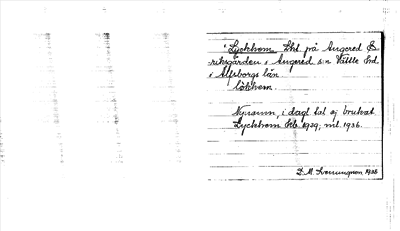 Lyckhem. Lht. på Angered E-
riksgården i Angered s:n Vättle hd
i Älfsborgs län
lökhem.
Nynamn, i dagl. tal ej brukat.
Lyckhem Kb. 1929, ml. 1936.
D. M. 1936